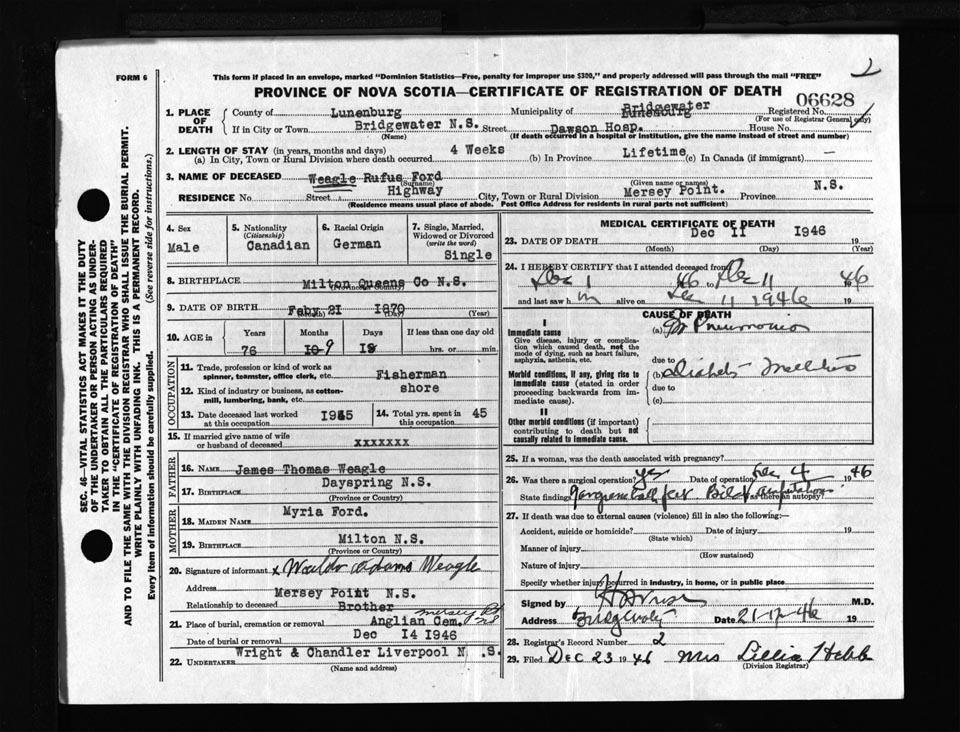 2
FORM 6
This form if placed in an envelope, marked "Dominion Statistics—Free, penalty for improper use $300," and properly addressed will pass through the mail "FREE"
PROVINCE OF NOVA SCOTIA—CERTIFICATE OF REGISTRATION OF DEATH
06628
1. PLACE OF DEATH
County of Lunenburg Municipality of Bridgewater Lunenburg Registered No.
(For use of Registrar General only)
If in City or Town Bridgewater N.S. Street Dawson Hosp. House No.
(Name) (If death occurred in a hospital or institution, give the name instead of street and number)
2. LENGTH OF STAY (in years, months and days)
(a) In City, Town or Rural Division where death occurred 4 Weeks (b) In Province Lifetime (c) In Canada (if immigrant) —
3. NAME OF DECEASED Weagle Rufus Ford
(Surname) (Given name or names)
RESIDENCE No Street Highway City, Town or Rural Division Mersey Point. Province N.S.
(Residence means usual place of abode. Post Office Address for residents in rural parts not sufficient)
4. Sex
Male
5. Nationality
(Citizenship)
Canadian
6. Racial Origin
German
7. Single, Married, Widowed or Divorced
(write the word)
Single
8. BIRTHPLACE Milton Queens Co N.S.
(Province or Country)
9. DATE OF BIRTH Feby 21 1870
(Month) (Day) (Year)
10. AGE in
Years Months Days If less than one day old
76 10 9 18 hrs. or min.
OCCUPATION
11. Trade, profession or kind of work as spinner, teamster, office clerk, etc. Fisherman
12. Kind of industry or business, as cotton-mill, lumbering, bank, etc. shore
13. Date deceased last worked at this occupation 1945
14. Total yrs. spent in this occupation 45
15. If married give name of wife or husband of deceased xxxxxxx
FATHER
16. NAME James Thomas Weagle
17. BIRTHPLACE Dayspring N.S.
(Province or Country)
MOTHER
18. MAIDEN NAME Myria Ford.
19. BIRTHPLACE Milton N.S.
(Province or Country)
20. Signature of informant x Waldo Adams Weagle
Address Mersey Point N.S.
Relationship to deceased Brother
21. Place of burial, cremation or removal Anglian Cem. Mersey Pt NS
Date of burial or removal Dec 14 1946
22. UNDERTAKER Wright & Chandler Liverpool N.S.
(Name and address)
MEDICAL CERTIFICATE OF DEATH
23. DATE OF DEATH Dec 11 1946 19
(Month) (Day) (Year)
24. I HEREBY CERTIFY that I attended deceased from
Dec 1 46 to Dec 11 1946
and last saw him alive on Dec 11 1946 19
CAUSE OF DEATH
I
Immediate cause
Give disease, injury or complication which caused death, not the mode of dying, such as heart failure, asphyxia, asthenia, etc.
(a) Pneumonia
due to
Morbid conditions, if any, giving rise to immediate cause (stated in order proceeding backwards from immediate cause).
(b) Diabetes Mellitus
due to
(c)
II
Other morbid conditions (if important) contributing to death but not causally related to immediate cause.
25. If a woman, was the death associated with pregnancy?
26. Was there a surgical operation? yes Date of operation Dec 4 1946
State findings Gangrene both feet Bilat amputations Was there an autopsy?
27. If death was due to external causes (violence) fill in also the following:—
Accident, suicide or homicide? Date of injury 19
(State which)
Manner of injury
(How sustained)
Nature of injury
Specify whether injury occurred in industry, in home, or in public place
Signed by M.D.
Address Date 21-12-46 19
28. Registrar's Record Number 2
29. Filed DEC 23 1946 Mrs Lillia Hebb
(Division Registrar)
SEC. 46—VITAL STATISTICS ACT MAKES IT THE DUTY
OF THE UNDERTAKER OR PERSON ACTING AS UNDER-
TAKER TO OBTAIN ALL THE PARTICULARS REQUIRED
IN THE "CERTIFICATE OF REGISTRATION OF DEATH"
AND TO FILE THE SAME WITH THE DIVISION REGISTRAR WHO SHALL ISSUE THE BURIAL PERMIT.
WRITE PLAINLY WITH UNFADING INK. THIS IS A PERMANENT RECORD.
Every item of information should be carefully supplied. (See reverse side for instructions.)